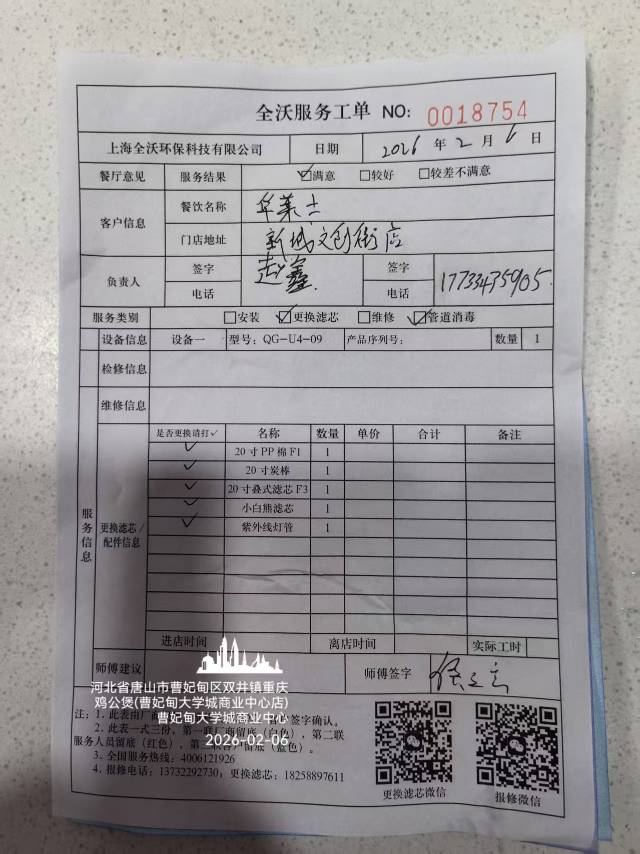 全沃服务工单 NO: 0018754
上海全沃环保科技有限公司 日期 2026 年 2 月 6 日
餐厅意见 服务结果 ☑满意 □较好 □较差不满意
客户信息 餐饮名称 华莱士
门店地址 新城文创街店
负责人 签字 赵鑫 签字
电话 电话 17733475905
服务类别 □安装 ☑更换滤芯 □维修 ☑管道消毒
设备信息 设备一 型号: QG-U4-09 产品序列号: 数量 1
检修信息
维修信息
服务信息
更换滤芯/配件信息
是否更换请打✓ 名称 数量 单价 合计 备注
✓ 20寸PP棉F1 1
✓ 20寸炭棒 1
✓ 20寸叠式滤芯F3 1
✓ 小白熊滤芯 1
✓ 紫外线灯管 1
进店时间 离店时间 实际工时
师傅建议 师傅签字
河北省唐山市曹妃甸区双井镇重庆
鸡公煲(曹妃甸大学城商业中心店)
曹妃甸大学城商业中心
2026-02-06
注: 1. 此表由厂商 签字确认。
2. 此表一式三份, 第一联厂商留底(白色), 第二联
服务人员留底(红色), 第三联客户留底(蓝色)。
3. 全国服务热线: 4006121926
4. 报修电话: 13732292730; 更换滤芯: 18258897611
更换滤芯微信 报修微信